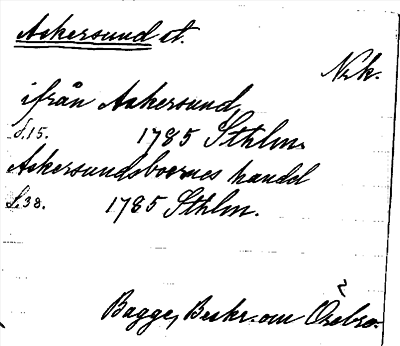 Askersund st.
Nrk.
ifrån Askersund
S.15. 1785 Sthlm.
Askersundsboernes handel
S.38. 1785 Sthlm.
Bagge, Beskr. om Örebro.